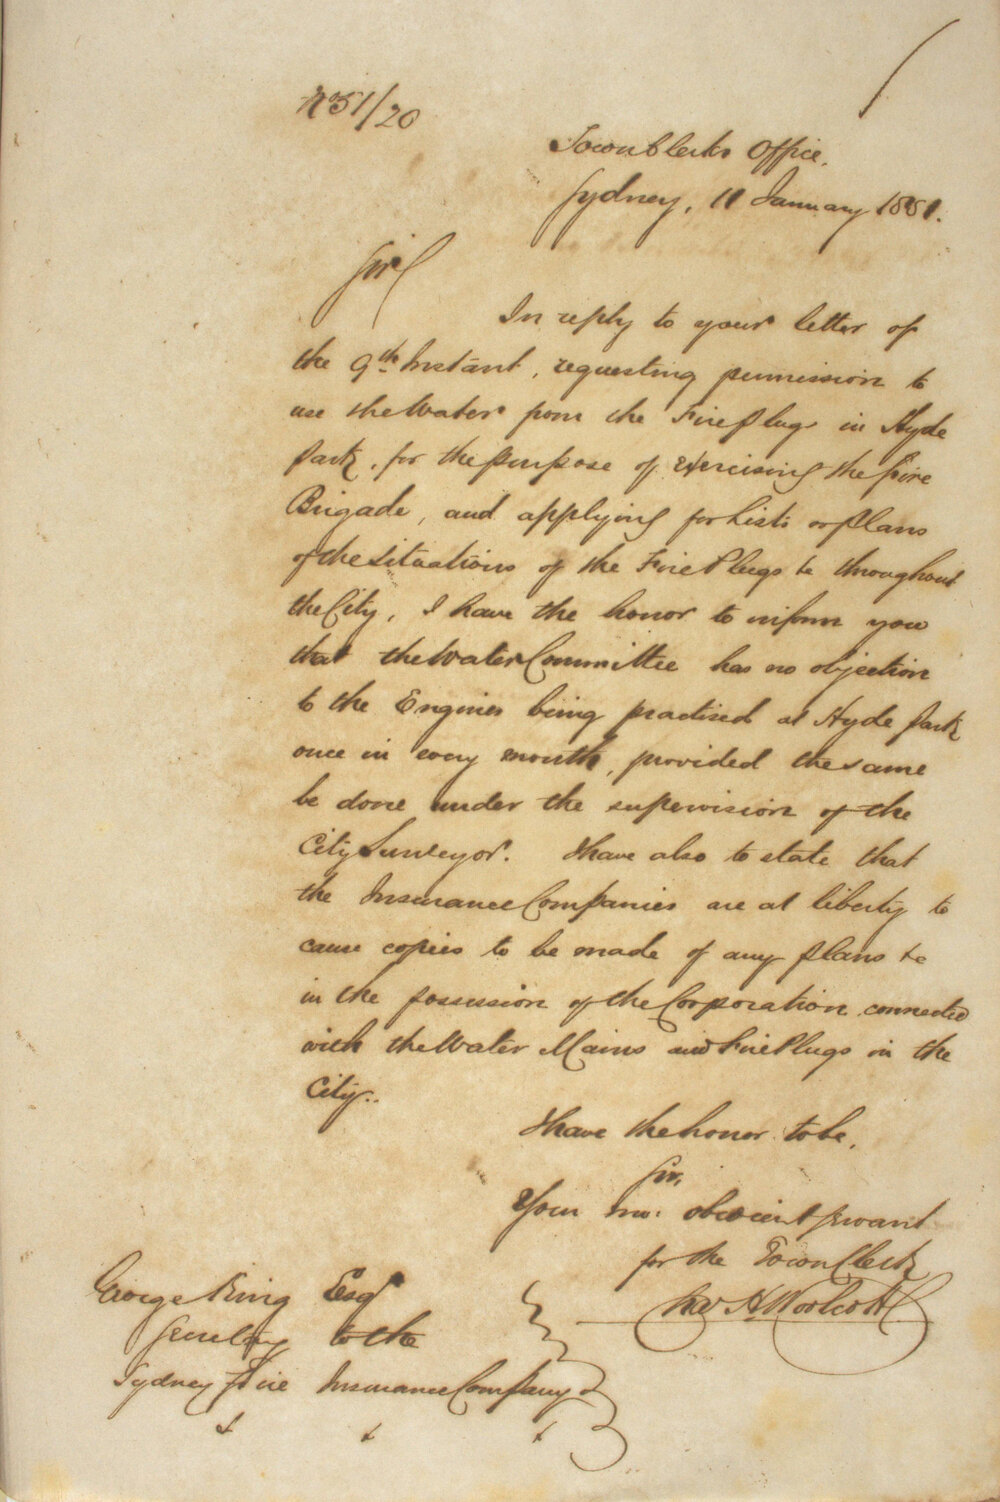 No 51/20
Town Clerks Office.
Sydney, 11 January 1851.
Sir
In reply to your letter of
the 9th Instant, requesting permission to
use the Water from the Fire Plugs in Hyde
Park, for the purpose of exercising the Fire
Brigade, and applying for Lists or Plans
of the Situations of the Fire Plugs &c throughout
the City, I have the honor to inform you
that the Water Committee has no objection
to the Engines being practised at Hyde Park
once in every month, provided the same
be done under the supervision of the
City Surveyor. I have also to state that
the Insurance Companies are at liberty to
cause copies to be made of any plans &c
in the possession of the Corporation connected
with the Water Mains and Fire Plugs in the
City.
I have the honor to be,
Sir,
Your mo: obedient servant
for the Town Clerk
Chas H Woolcott
George King Esqr
Secretary to the
Sydney Fire Insurance Company